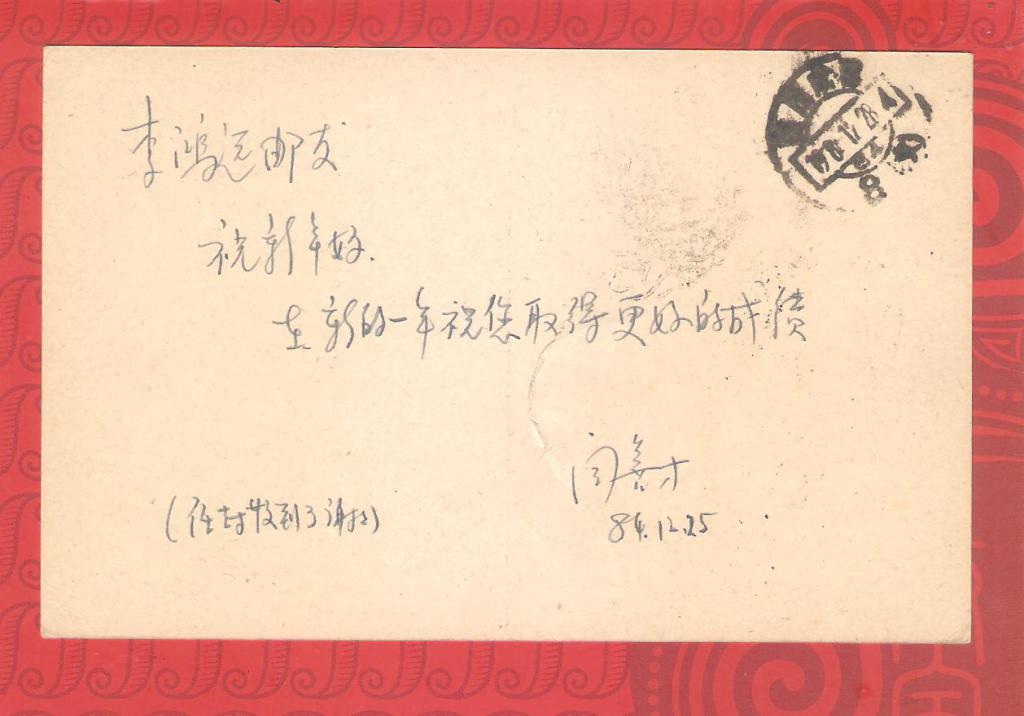 李鸿远邮友
祝新年好.
在新的一年祝您取得更好的成绩
闫喜才
84.12.25
(往封收到了谢谢)
8